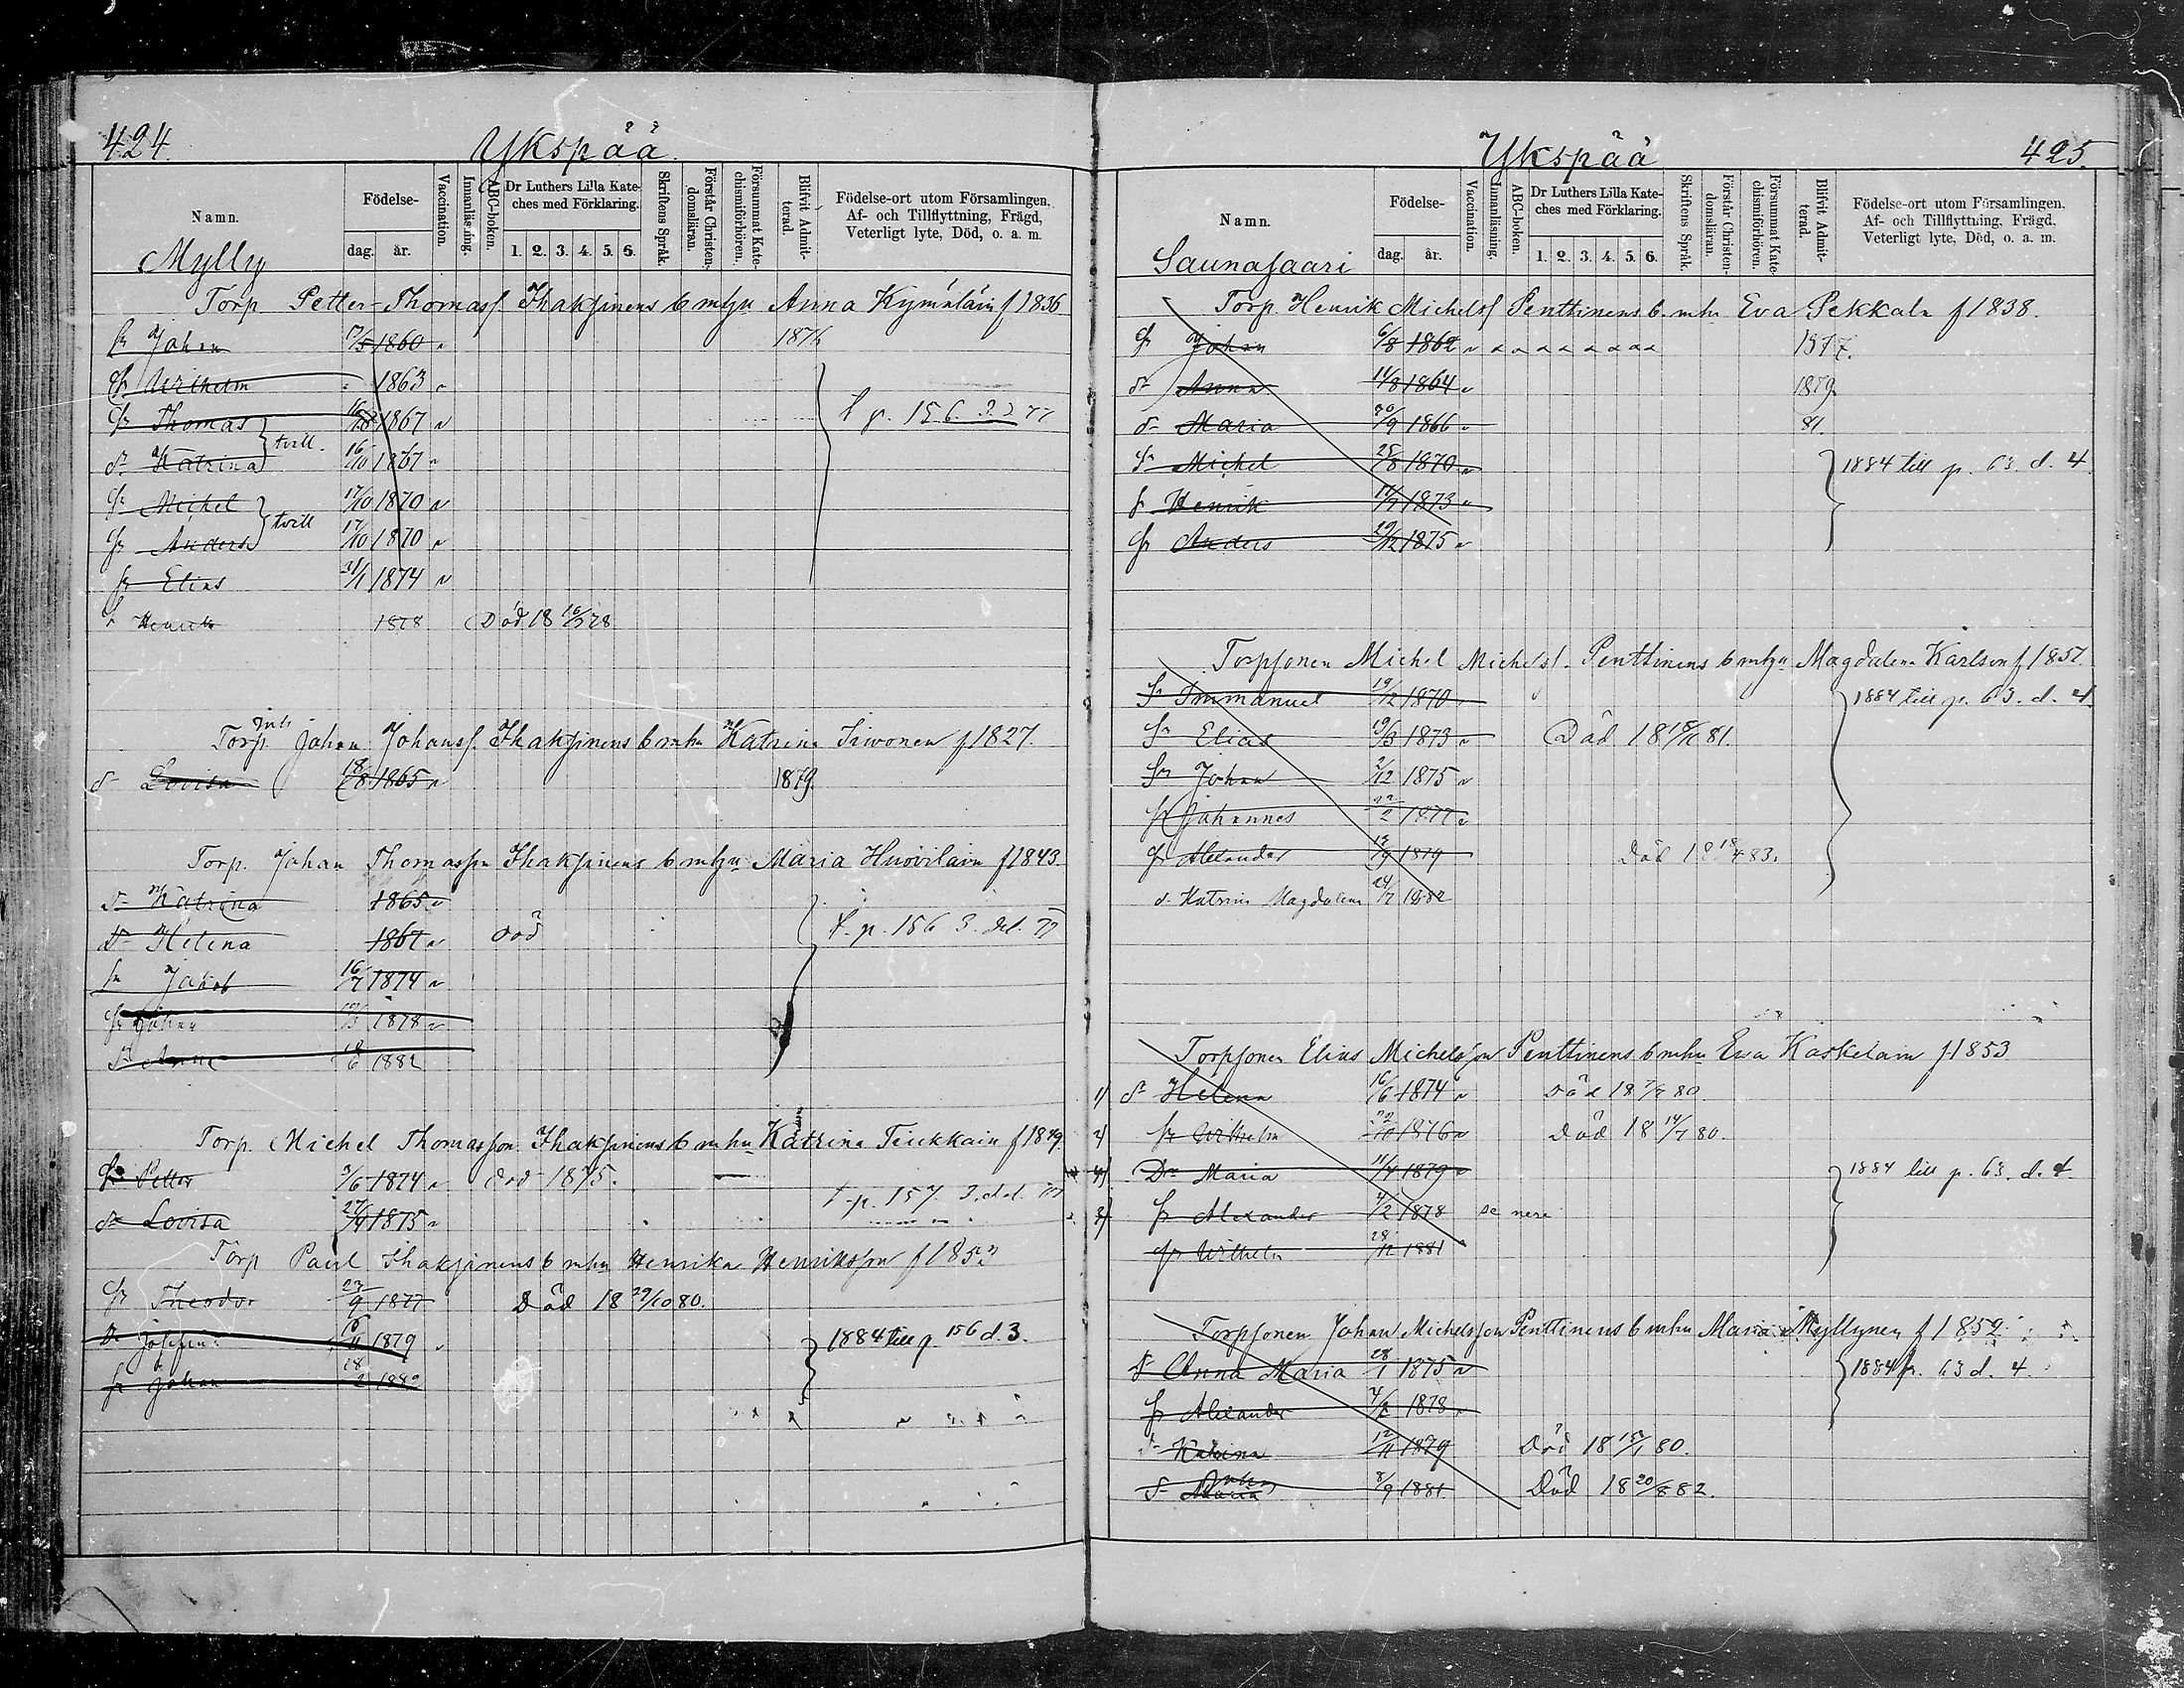 424.
Ykspää
Namn.
Födelse-
dag. år.
Vaccination.
Innanläsning.
ABC-boken.
Dr Luthers Lilla Kate-
ches med Förklaring.
1. 2. 3. 4. 5. 6.
Skriftens Språk.
Förstår Christen-
domsläran.
Försummat Kate-
chismiförhören.
Blifvit Admit-
terad.
Födelse-ort utom Församlingen,
Af- och Tillflyttning, Frägd,
Veterligt lyte, Död, o. a. m.
Mylly
Torp Petter Thomass. Ihaksinens b mhu Anna Kymäläin f 1836
Sr Johan 7/5 1860 1876
Sr Wilhelm 1863
Sr Thomas 1867 t p. 156. 3 d 77
tvill.
dr Katrina 16/10 1867
Sr Michel 17/10 1870
tvill
Sr Anders 17/10 1870
Sr Elias 1874
Henrik 1878 Död 18 78
Torp. Johan Johanss. Ihaksinens b mhu Katrina f 1827.
dr Lovisa 18/8 1865 1879.
Torp. Johan Thomasson Ihaksinens b mhu Maria Huovilain f 1843.
dr Katrina 1865
Dr Helena 1867 död t. p. 156 3. del. 77
Sr Jakob 16/7 1874
Sr Johan 1878
Dr Anna 18/6 1882
Torp. Michel Thomasson Ihaksinens b mhu Katrina Tiukkain f 1849.
Sr Petter 3/6 1874 död 1875.
t p. 157. 3. del.
dr Lovisa 27/4 1875
Torp Paul Ihaksinens b mhu Henrika Henriksson f 1853
Sr Theodor 23/9 1877 Död 18 29/10 80.
Dr Josefina 1879 1884 till p. 156 d. 3.
Sr Johan 18/2 1882
Ykspää
425.
Namn.
Födelse-
dag. år.
Vaccination.
Innanläsning.
ABC-boken.
Dr Luthers Lilla Kate-
ches med Förklaring.
1. 2. 3. 4. 5. 6.
Skriftens Språk.
Förstår Christen-
domsläran.
Försummat Kate-
chismiförhören.
Blifvit Admit-
terad.
Födelse-ort utom Församlingen,
Af- och Tillflyttning, Frägd,
Veterligt lyte, Död, o. a. m.
Saunasaari
Torp. Henrik Michelss Penttinens b. mhu Eva Pekkaln f 1838.
Sr Johan 6/8 1862 1877.
dr Anna 11/8 1864 1879
dr Maria 30/9 1866 81.
Sr Michel 25/8 1870 1884 till p. 63. d. 4
Sr Henrik 1873
Sr Anders 29/12 1875
Torpsonen Michel Michelss. Penttinens b mhu Magdalena Karlson f 1857.
Sr Immanuel 19/12 1870 1884 till p. 63. d. 4.
Sr Elias 19/3 1873 Död 18 81.
Sr Johan 2/12 1875
Sr Johannes 22/2 1877
Sr Alexander 13/9 1879 Död 18 18/4 83.
d. Katrina Magdalena 24/7 1882
Torpsonen Elias Michelsson Penttinens b mhu Eva Kaskelain f 1853
1/ dr Helena 16/6 1874 Död 18 80
2/ Sr Wilhelm 1876 Död 18 14/7 80.
4) Dr Maria 11/4 1879 1884 till p. 63. d. 4.
3) Sr Alexander 4/2 1878
Sr Wilhelm 28/12 1881
Torpsonen Johan Michelsson Penttinens b mhu Maria Myllynen f 1852
dr Anna Maria 28/1 1875 1884 p. 63 d. 4.
Sr Alexander 4/2 1878
dr Katrina 12/11 1879 Död 18 15/1 80.
dr Maria 8/9 1881 Död 18 20/8 82.